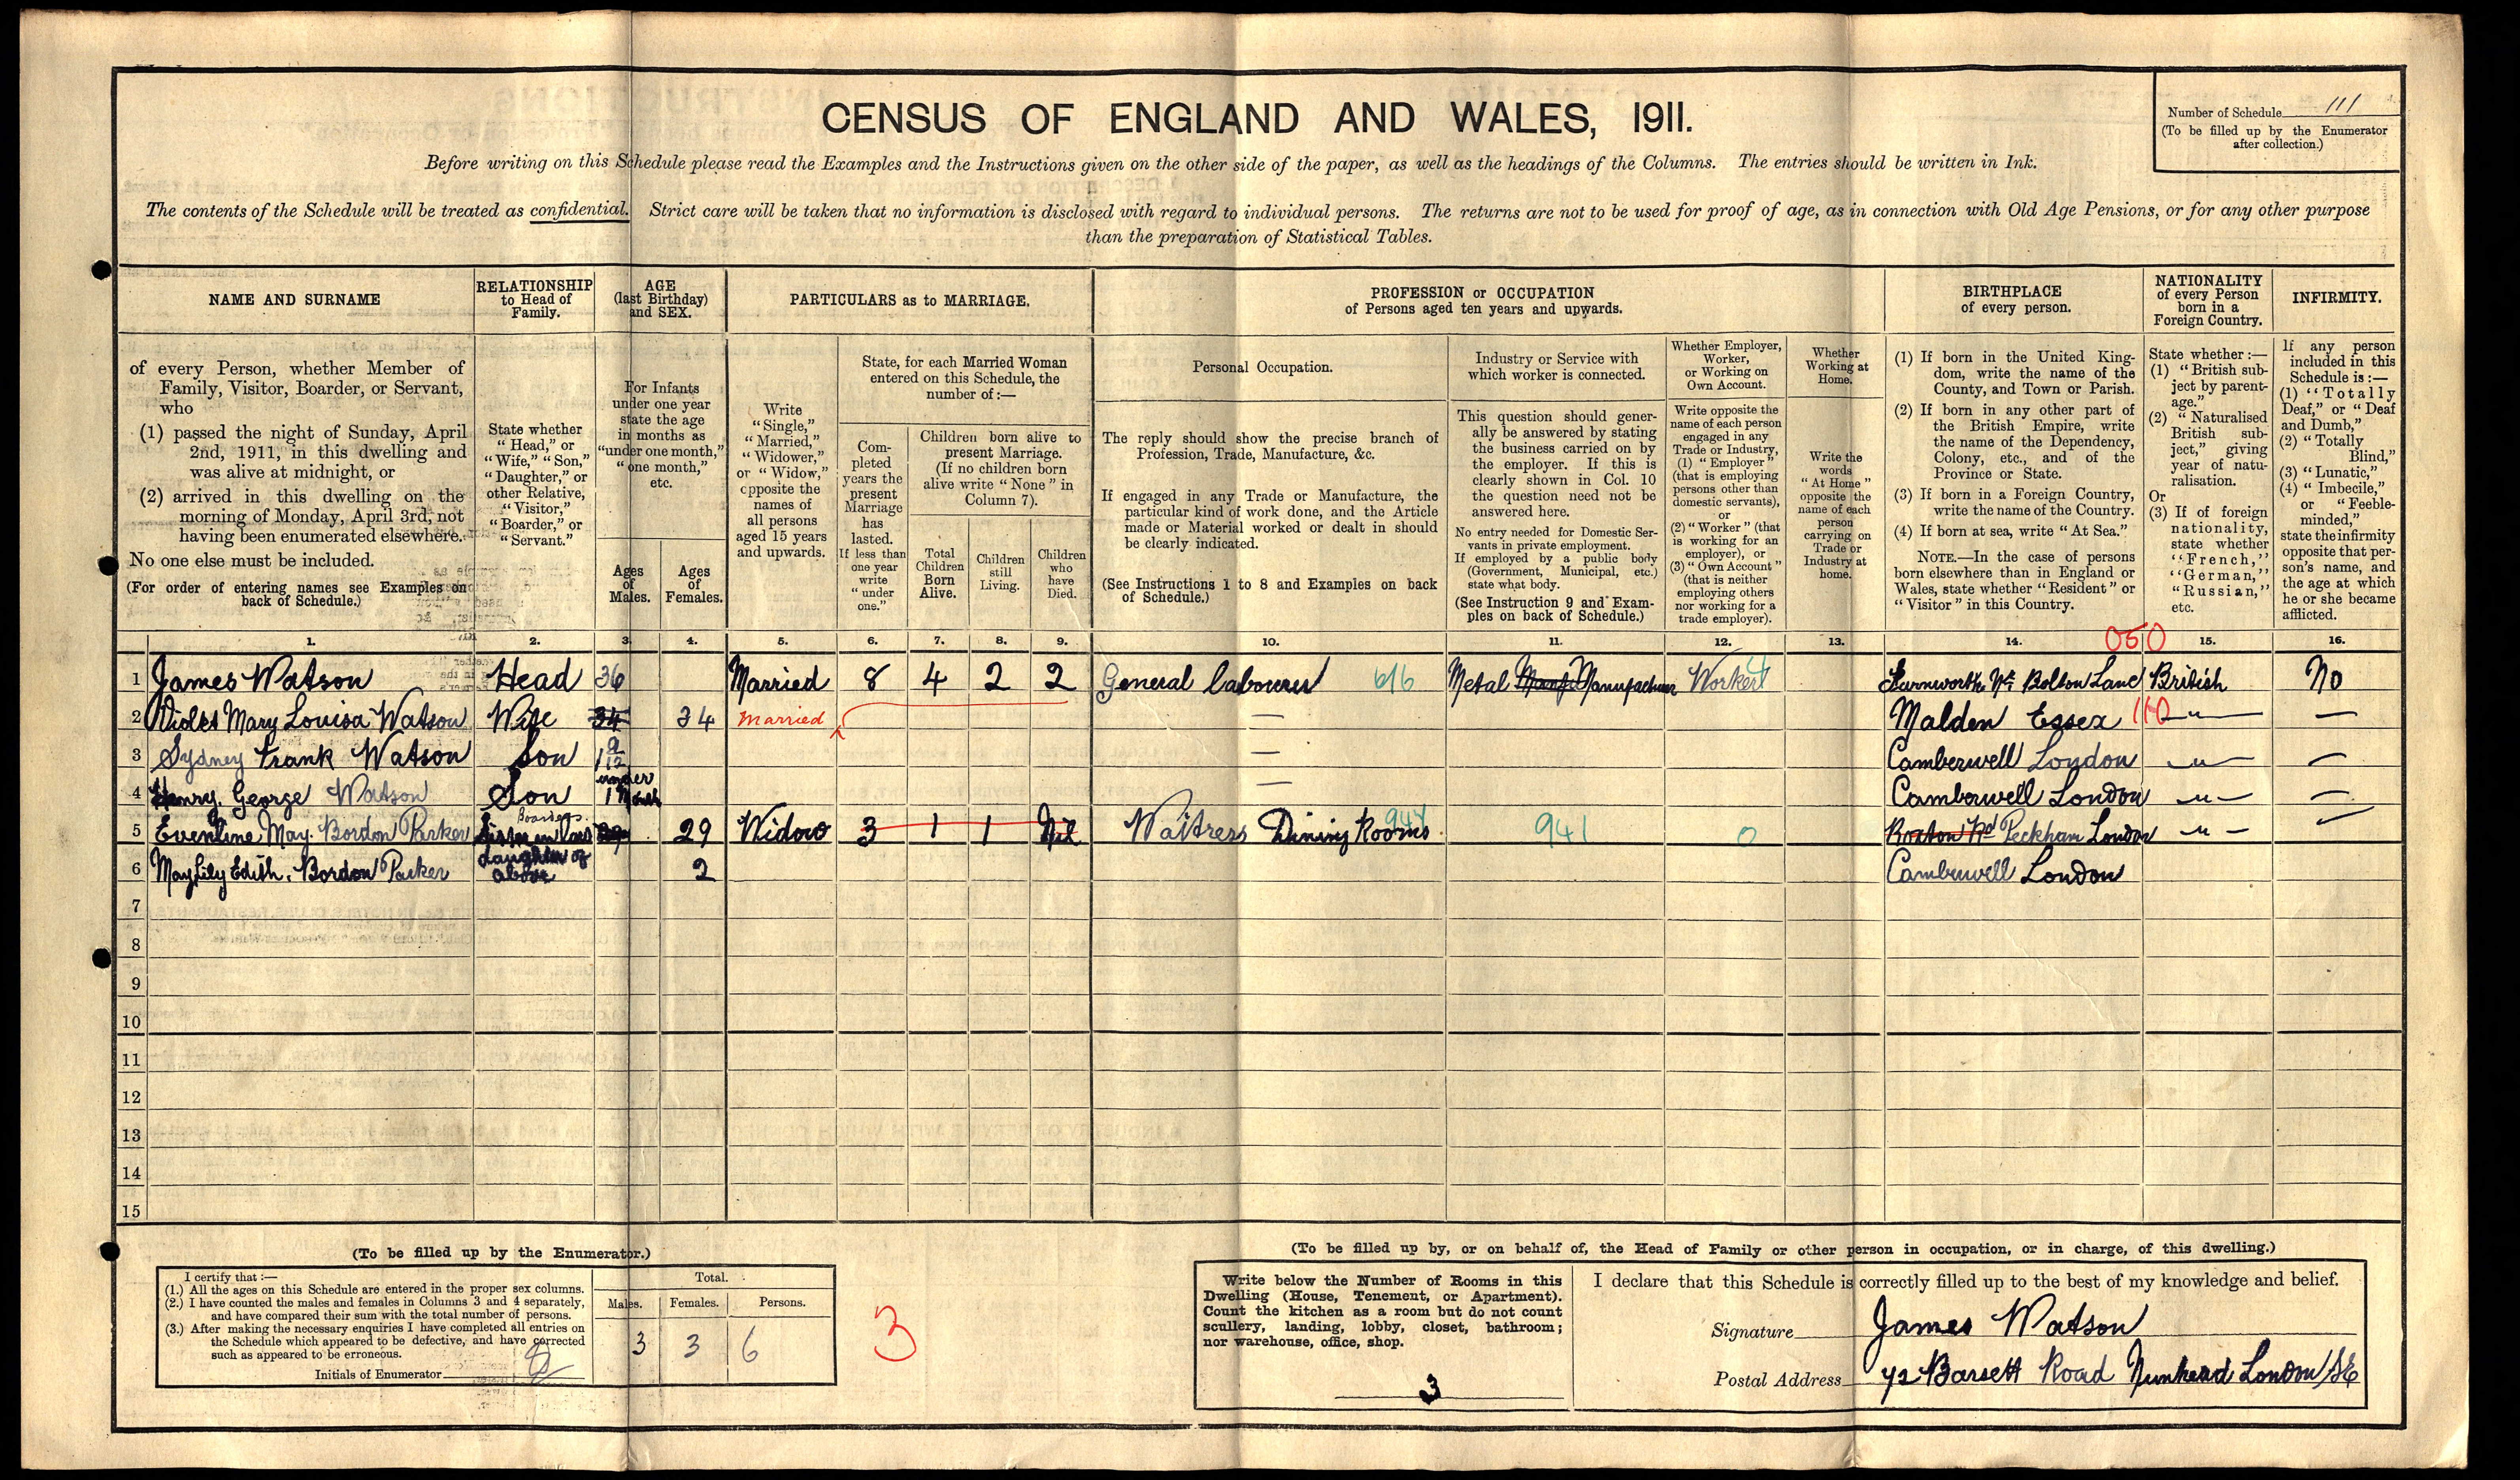 CENSUS OF ENGLAND AND WALES, 1911.
Number of Schedule 111
(To be filled up by the Enumerator
after collection.)
Before writing on this Schedule please read the Examples and the Instructions given on the other side of the paper, as well as the headings of the Columns. The entries should be written in Ink.
The contents of the Schedule will be treated as confidential. Strict care will be taken that no information is disclosed with regard to individual persons. The returns are not to be used for proof of age, as in connection with Old Age Pensions, or for any other purpose
than the preparation of Statistical Tables.
NAME AND SURNAME
of every Person, whether Member of
Family, Visitor, Boarder, or Servant,
who
(1) passed the night of Sunday, April
2nd, 1911, in this dwelling and
was alive at midnight, or
(2) arrived in this dwelling on the
morning of Monday, April 3rd, not
having been enumerated elsewhere.
No one else must be included.
(For order of entering names see Examples on
back of Schedule.)
RELATIONSHIP
to Head of
Family.
State whether
"Head," or
"Wife," "Son,"
"Daughter," or
other Relative,
"Visitor,"
"Boarder," or
"Servant."
AGE
(last Birthday)
and SEX.
For Infants
under one year
state the age
in months as
"under one month,"
"one month,"
etc.
Ages
of
Males.
Ages
of
Females.
PARTICULARS as to MARRIAGE.
Write
"Single,"
"Married,"
"Widower,"
or "Widow,"
opposite the
names of
all persons
aged 15 years
and upwards.
State, for each Married Woman
entered on this Schedule, the
number of:—
Com-
pleted
years the
present
Marriage
has
lasted.
If less than
one year
write
"under
one."
Children born alive to
present Marriage.
(If no children born
alive write "None" in
Column 7).
Total
Children
Born
Alive.
Children
still
Living.
Children
who
have
Died.
PROFESSION or OCCUPATION
of Persons aged ten years and upwards.
Personal Occupation.
The reply should show the precise branch of
Profession, Trade, Manufacture, &c.
If engaged in any Trade or Manufacture, the
particular kind of work done, and the Article
made or Material worked or dealt in should
be clearly indicated.
(See Instructions 1 to 8 and Examples on back
of Schedule.)
Industry or Service with
which worker is connected.
This question should gener-
ally be answered by stating
the business carried on by
the employer. If this is
clearly shown in Col. 10
the question need not be
answered here.
No entry needed for Domestic Ser-
vants in private employment.
If employed by a public body
(Government, Municipal, etc.)
state what body.
(See Instruction 9 and Exam-
ples on back of Schedule.)
Whether Employer,
Worker,
or Working on
Own Account.
Write opposite the
name of each person
engaged in any
Trade or Industry,
(1) "Employer"
(that is employing
persons other than
domestic servants),
or
(2) "Worker" (that
is working for an
employer), or
(3) "Own Account"
(that is neither
employing others
nor working for a
trade employer).
Whether
Working at
Home.
Write the
words
"At Home"
opposite the
name of each
person
carrying on
Trade or
Industry at
home.
BIRTHPLACE
of every person.
(1) If born in the United King-
dom, write the name of the
County, and Town or Parish.
(2) If born in any other part of
the British Empire, write
the name of the Dependency,
Colony, etc., and of the
Province or State.
(3) If born in a Foreign Country,
write the name of the Country.
(4) If born at sea, write "At Sea."
NOTE.—In the case of persons
born elsewhere than in England or
Wales, state whether "Resident" or
"Visitor" in this Country.
NATIONALITY
of every Person
born in a
Foreign Country.
State whether:—
(1) "British sub-
ject by parent-
age."
(2) "Naturalised
British sub-
ject," giving
year of natu-
ralisation.
Or
(3) If of foreign
nationality,
state whether
"French,"
"German,"
"Russian,"
etc.
INFIRMITY.
If any person
included in this
Schedule is:—
(1) "Totally
Deaf," or "Deaf
and Dumb,"
(2) "Totally
Blind,"
(3) "Lunatic,"
(4) "Imbecile,"
or "Feeble-
minded,"
state the infirmity
opposite that per-
son's name, and
the age at which
he or she became
afflicted.
1. 2. 3. 4. 5. 6. 7. 8. 9. 10. 11. 12. 13. 14. 15. 16.
050
1 James Watson Head 36 Married 8 4 2 2 General labourer 616 Metal Manufacturer Worker 4 Farnworth Nr Bolton Lanc British No
2 Violet Mary Louisa Watson Wife 34 34 Married — Malden Essex 110 —"— —
3 Sydney Frank Watson Son 1 9/12 — Camberwell London —"— —
4 Henry George Watson Son under 1 Month — Camberwell London —"— —
5 Evenline May Bordon Parker Boarders Sister in law 29 Widow 3 1 1 Nil Waitress Dining Rooms 941 0 Peckham London —"— —
6 May Lily Edith Bordon Parker daughter of above 2 Camberwell London
7
8
9
10
11
12
13
14
15
(To be filled up by the Enumerator.)
I certify that:—
(1.) All the ages on this Schedule are entered in the proper sex columns.
(2.) I have counted the males and females in Columns 3 and 4 separately,
and have compared their sum with the total number of persons.
(3.) After making the necessary enquiries I have completed all entries on
the Schedule which appeared to be defective, and have corrected
such as appeared to be erroneous.
Initials of Enumerator
Total.
Males. Females. Persons.
3 3 6
3
(To be filled up by, or on behalf of, the Head of Family or other person in occupation, or in charge, of this dwelling.)
Write below the Number of Rooms in this
Dwelling (House, Tenement, or Apartment).
Count the kitchen as a room but do not count
scullery, landing, lobby, closet, bathroom;
nor warehouse, office, shop.
3
I declare that this Schedule is correctly filled up to the best of my knowledge and belief.
Signature James Watson
Postal Address 72 Barsett Road Nunhead London S.E